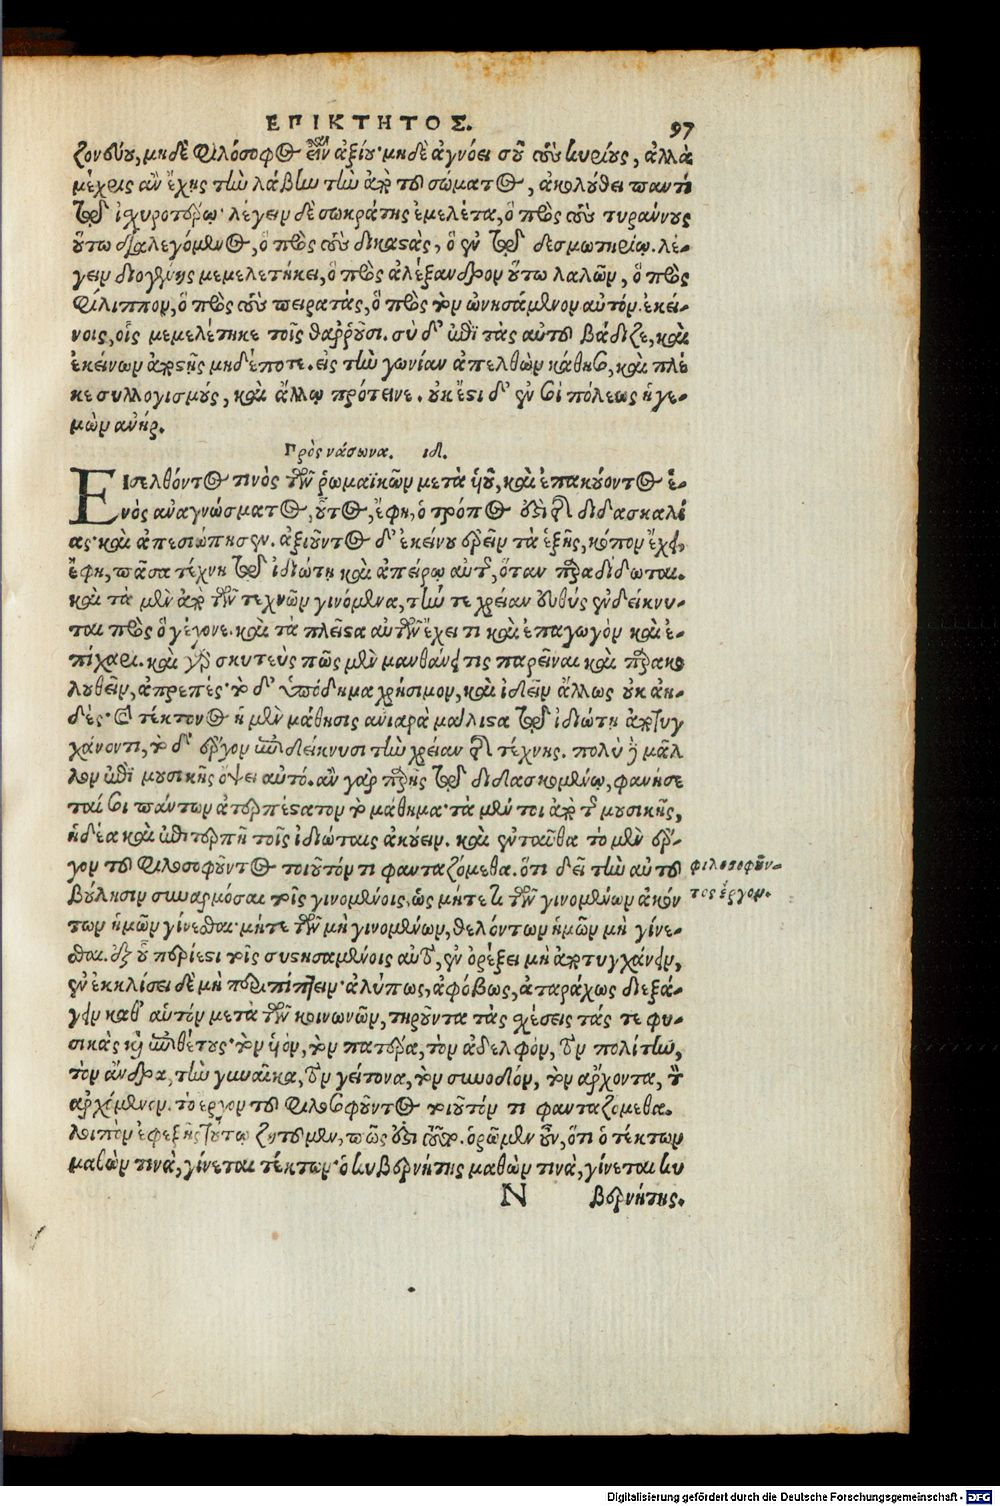 ΕΠΙΚΤΗΤΟΣ.
97
ζον σύου, μηδὲ φιλόσοφος εἶναι ἀξίου· μηδὲ ἀγνόει σοῦ τοὺς κυρίους, ἀλλὰ
μέχρις ἂν ἔχῃς τὴν λάβην τὴν ἀπὸ τοῦ σώματος, ἀκολούθει παντὶ
τῷ ἰχυροτέρῳ· λέγειν δὲ σωκράτης ἐμελέτα, ὁ πρὸς τοὺς τυράννους
οὕτω διαλεγόμενος, ὁ πρὸς τοὺς δικαστὰς, ὁ ἐν τῷ δεσμωτηρίῳ. λέ-
γειν διογένης μεμελετήκει, ὁ πρὸς ἀλέξανδρον οὕτω λαλῶν, ὁ πρὸς
φίλιππον, ὁ πρὸς τοὺς πειρατὰς, ὁ πρὸς τὸν ὠνησάμενον αὐτόν. ἐκεί-
νοις, οἷς μεμελέτηκε τοῖς θαῤῥοῦσι. σὺ δ' ἐπὶ τὰς αὐτοῦ βάδιζε, καὶ
ἐκείνων ἀποστῇς μηδέποτε. εἰς τὴν γωνίαν ἀπελθὼν κάθησο, καὶ πλέ
κε συλλογισμούς, καὶ ἄλλῳ πρότεινε. οὐκ ἔστι δ' ἐν σοὶ πόλεως ἡγε-
μὼν ἀνήρ.
Πρὸς νάσωνα. ιδ.
Εἰσελθόντος τινὸς τῶν ῥωμαϊκῶν μετὰ υἱοῦ, καὶ ἐπακούοντος ἑ-
νὸς ἀναγνώσματος, οὗτος, ἔφη, ὁ τρόπος ἐστὶ τῆς διδασκαλί
ας· καὶ ἀπεσιώπησεν. ἀξιοῦντος δ' ἐκείνου εὑρεῖν τὰ ἑξῆς, κόπον ἔχει,
ἔφη, πᾶσα τέχνη τῷ ἰδιώτῃ καὶ ἀπείρῳ αὐτῆς, ὅταν παραδίδωται.
καὶ τὰ μὲν ἀπὸ τῶν τεχνῶν γινόμενα, τήν τε χρείαν εὐθύς ἐνδείκνυ-
ται πρὸς ὃ γέγονε. καὶ τὰ πλεῖστα αὐτῶν ἔχει τι καὶ ἐπαγωγὸν καὶ ἐ-
πίχαρι. καὶ γὰρ σκυτεὺς πῶς μὲν μανθάνει τις παρεῖναι καὶ παρακο
λουθεῖν, ἀπρεπές· τὸ δ' ὑπόδημα χρήσιμον, καὶ ἰδεῖν ἄλλως οὐκ ἀη-
δές· καὶ τέκτονος ἡ μὲν μάθησις ἀνιαρὰ μάλιστα τῷ ἰδιώτῃ παρατυγ
χάνοντι, τὸ δὲ ἔργον ἐπιδείκνυσι τὴν χρείαν τῆς τέχνης. πολὺ δὲ μᾶλ
λον ἐπὶ μουσικῆς ὄψει αὐτό. ἂν γὰρ παρῇς τῷ διδασκομένῳ, φανήσε
ταί σοι πάντων ἀτερπέστατον τὸ μάθημα· τὰ μέν τοι ἀπὸ τῆς μουσικῆς,
ἡδέα καὶ ἐπιτερπῆ τοῖς ἰδιώταις ἀκούειν. καὶ ἐνταῦθα τὸ μὲν ἔρ-
γον τοῦ φιλοσοφοῦντος τοιοῦτόν τι φανταζόμεθα. ὅτι δεῖ τὴν αὐτοῦ
βούλησιν συναρμόσαι τοῖς γινομένοις, ὡς μήτε τι τῶν γινομένων ἀκόν
των ἡμῶν γίνεσθαι· μήτε τῶν μὴ γινομένων, θελόντων ἡμῶν μὴ γίνε-
σθαι. ἐξ οὗ περίεστι τοῖς συστησαμένοις αὐτό, ἐν ὀρέξει μὴ ἀποτυγχάνειν,
ἐν ἐκκλίσει δὲ μὴ περιπίπτειν· ἀλύπως, ἀφόβως, ἀταράχως διεξά-
γειν καθ' αὑτόν μετὰ τῶν κοινωνῶν, τηροῦντα τὰς σχέσεις τάς τε φυ-
σικὰς καὶ ἐπιθέτους· τὸν υἱόν, τὸν πατέρα, τὸν ἀδελφόν, τὸν πολίτην,
τὸν ἄνδρα, τὴν γυναῖκα, τὸν γείτονα, τὸν σύνοδον, τὸν ἄρχοντα, τὸν
ἀρχόμενον. τὸ ἔργον τοῦ φιλοσοφοῦντος τοιοῦτόν τι φανταζόμεθα.
λοιπὸν ἐφεξῆς τούτῳ ζητοῦμεν, πῶς ἔσται τοῦτο. ὁρῶμεν οὖν, ὅτι ὁ τέκτων
μαθὼν τινὰ, γίνεται τέκτων· ὁ κυβερνήτης μαθὼν τινὰ, γίνεται κυ
φιλοσοφοῦν-
τος ἔργον.
N βερνήτης.
Digitalisierung gefördert durch die Deutsche Forschungsgemeinschaft - DFG